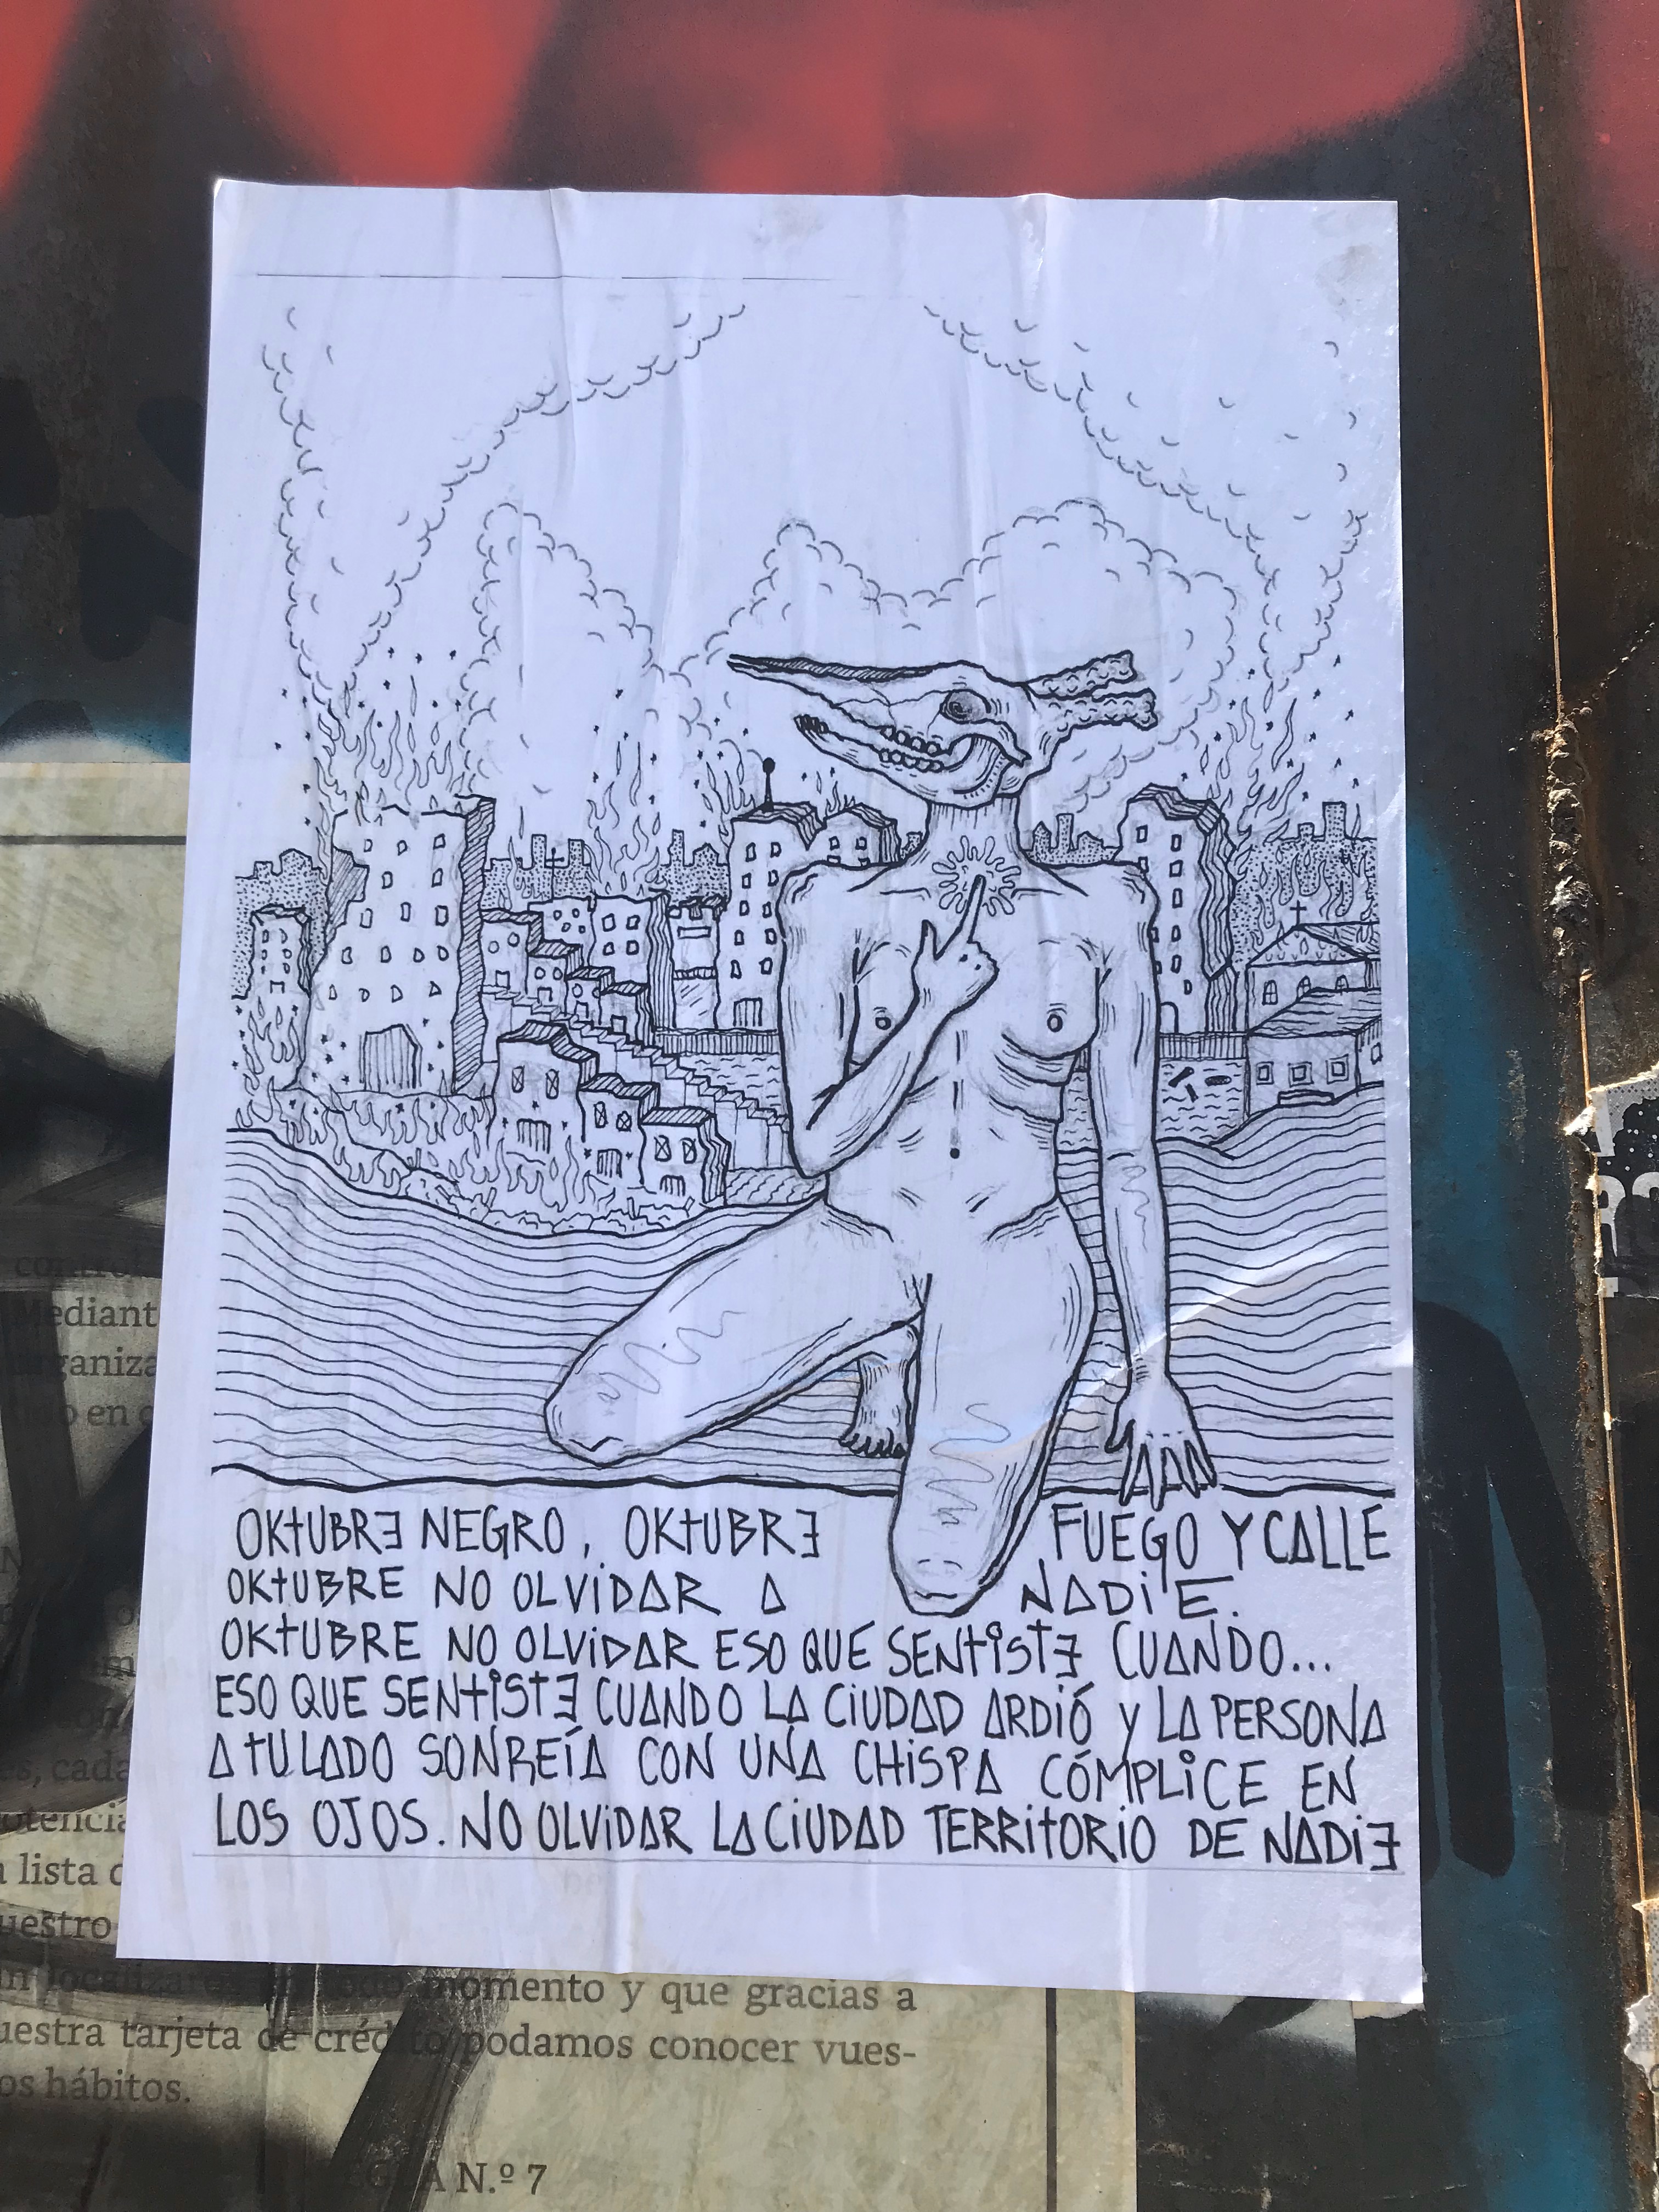 OKTUBRE NEGRO, OKTUBRE FUEGO Y CALLE
OKTUBRE NO OLVIDAR A NADIE.
OKTUBRE NO OLVIDAR ESO QUE SENTISTE CUANDO...
ESO QUE SENTISTE CUANDO LA CIUDAD ARDIÓ Y LA PERSONA
A TU LADO SONREÍA CON UNA CHISPA CÓMPLICE EN
LOS OJOS. NO OLVIDAR LA CIUDAD TERRITORIO DE NADIE
Mediant
organiza
en
cada
lista
uestro
momento y que gracias a
uestra tarjeta de crédito podamos conocer vues-
os hábitos.
N.º 7